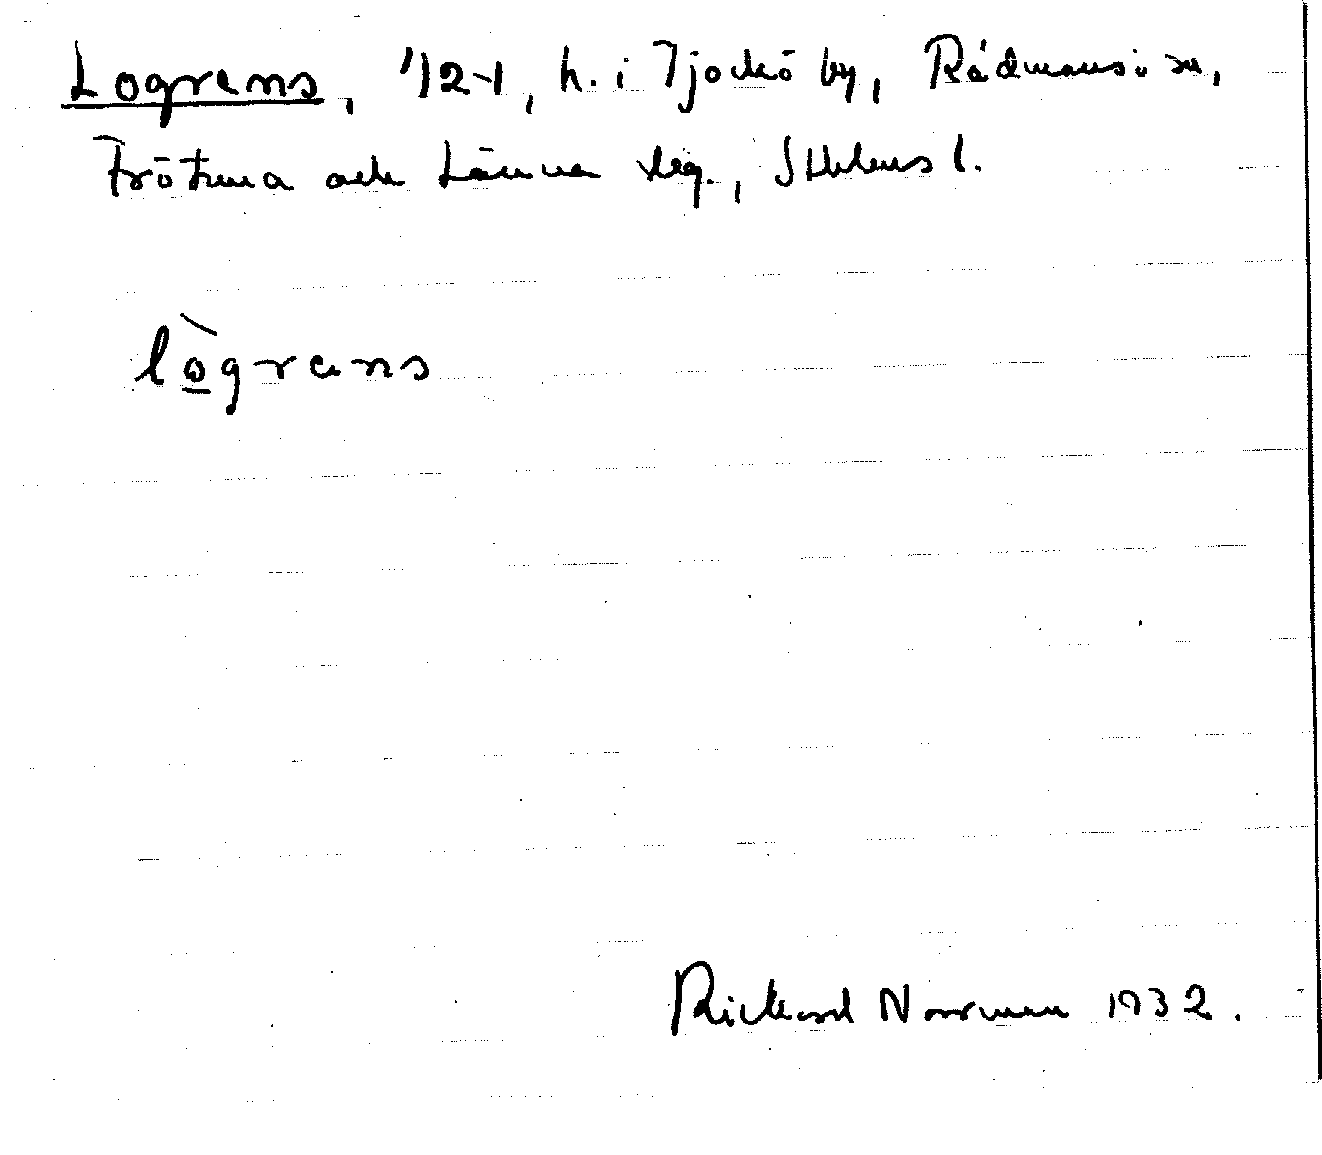 Logrens, 1/24, h. i Tjockö by, Rådmansö sn,
Frötuna och Länna slg., Sthlms l.
lògrens
Rickard Norman 1932.